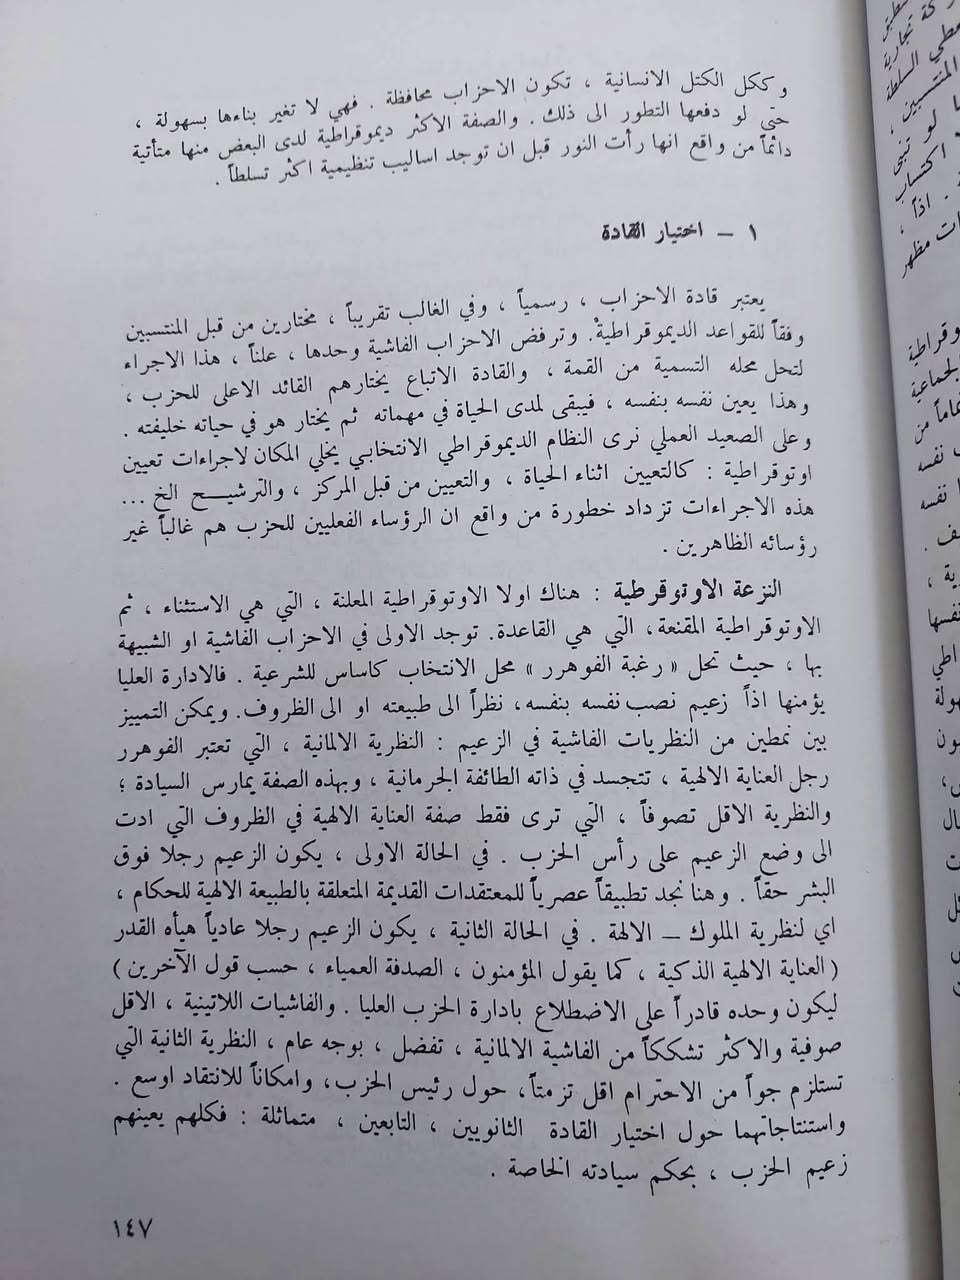 وككل الكتل الانسانية ، تكون الاحزاب محافظة . فهي لا تغير بناءها بسهولة ،
حتى لو دفعها التطور الى ذلك . والصفة الاكثر ديموقراطية لدى البعض منها متأتية
دائماً من واقع انها رأت النور قبل ان توجد اساليب تنظيمية اكثر تسلطاً .
١ – اختيار القادة
يعتبر قادة الاحزاب ، رسمياً ، وفي الغالب تقريباً ، مختارين من قبل المنتسبين
وفقاً للقواعد الديموقراطية . وترفض الاحزاب الفاشية وحدها ، علناً ، هذا الاجراء
لتحل محله التسمية من القمة ، والقادة الاتباع يختارهم القائد الاعلى للحزب ،
وهذا يعين نفسه بنفسه ، فيبقى لمدى الحياة في مهماته ثم يختار هو في حياته خليفته .
وعلى الصعيد العملي نرى النظام الديموقراطي الانتخابي يخلي المكان لاجراءات تعيين
اوتوقراطية : كالتعيين اثناء الحياة ، والتعيين من قبل المركز ، والترشيح الخ ...
هذه الاجراءات تزداد خطورة من واقع ان الرؤساء الفعليين للحزب هم غالباً غير
رؤسائه الظاهرين .
النزعة الاوتوقرطية : هناك اولا الاوتوقراطية المعلنة ، التي هي الاستثناء ، ثم
الاوتوقراطية المقنعة، التي هي القاعدة. توجد الاولى في الاحزاب الفاشية او الشبيهة
بها ، حيث تحل « رغبة الفوهرر » محل الانتخاب كاساس للشرعية . فالادارة العليا
يؤمنها اذاً زعيم نصب نفسه بنفسه، نظراً الى طبيعته او الى الظروف. ويمكن التمييز
بين نمطين من النظريات الفاشية في الزعيم : النظرية الالمانية ، التي تعتبر الفوهرر
رجل العناية الالهية ، تتجسد في ذاته الطائفة الجرمانية ، وبهذه الصفة يمارس السيادة ؛
والنظرية الاقل تصوفاً ، التي ترى فقط صفة العناية الالهية في الظروف التي ادت
الى وضع الزعيم على رأس الحزب . في الحالة الاولى ، يكون الزعيم رجلا فوق
البشر حقاً . وهنا نجد تطبيقاً عصرياً للمعتقدات القديمة المتعلقة بالطبيعة الالهية للحكام ،
اي لنظرية الملوك – الالهة . في الحالة الثانية ، يكون الزعيم رجلا عادياً هيأه القدر
(العناية الالهية الذكية ، كما يقول المؤمنون ، الصدفة العمياء ، حسب قول الآخرين)
ليكون وحده قادراً على الاضطلاع بادارة الحزب العليا . والفاشيات اللاتينية ، الاقل
صوفية والاكثر تشككاً من الفاشية الالمانية ، تفضل ، بوجه عام ، النظرية الثانية التي
تستلزم جواً من الاحترام اقل تزمتاً، حول رئيس الحزب، وامكاناً للانتقاد اوسع .
واستنتاجاتهما حول اختيار القادة الثانويين ، التابعين ، متماثلة : فكلهم يعينهم
زعيم الحزب ، بحكم سيادته الخاصة .
١٤٧